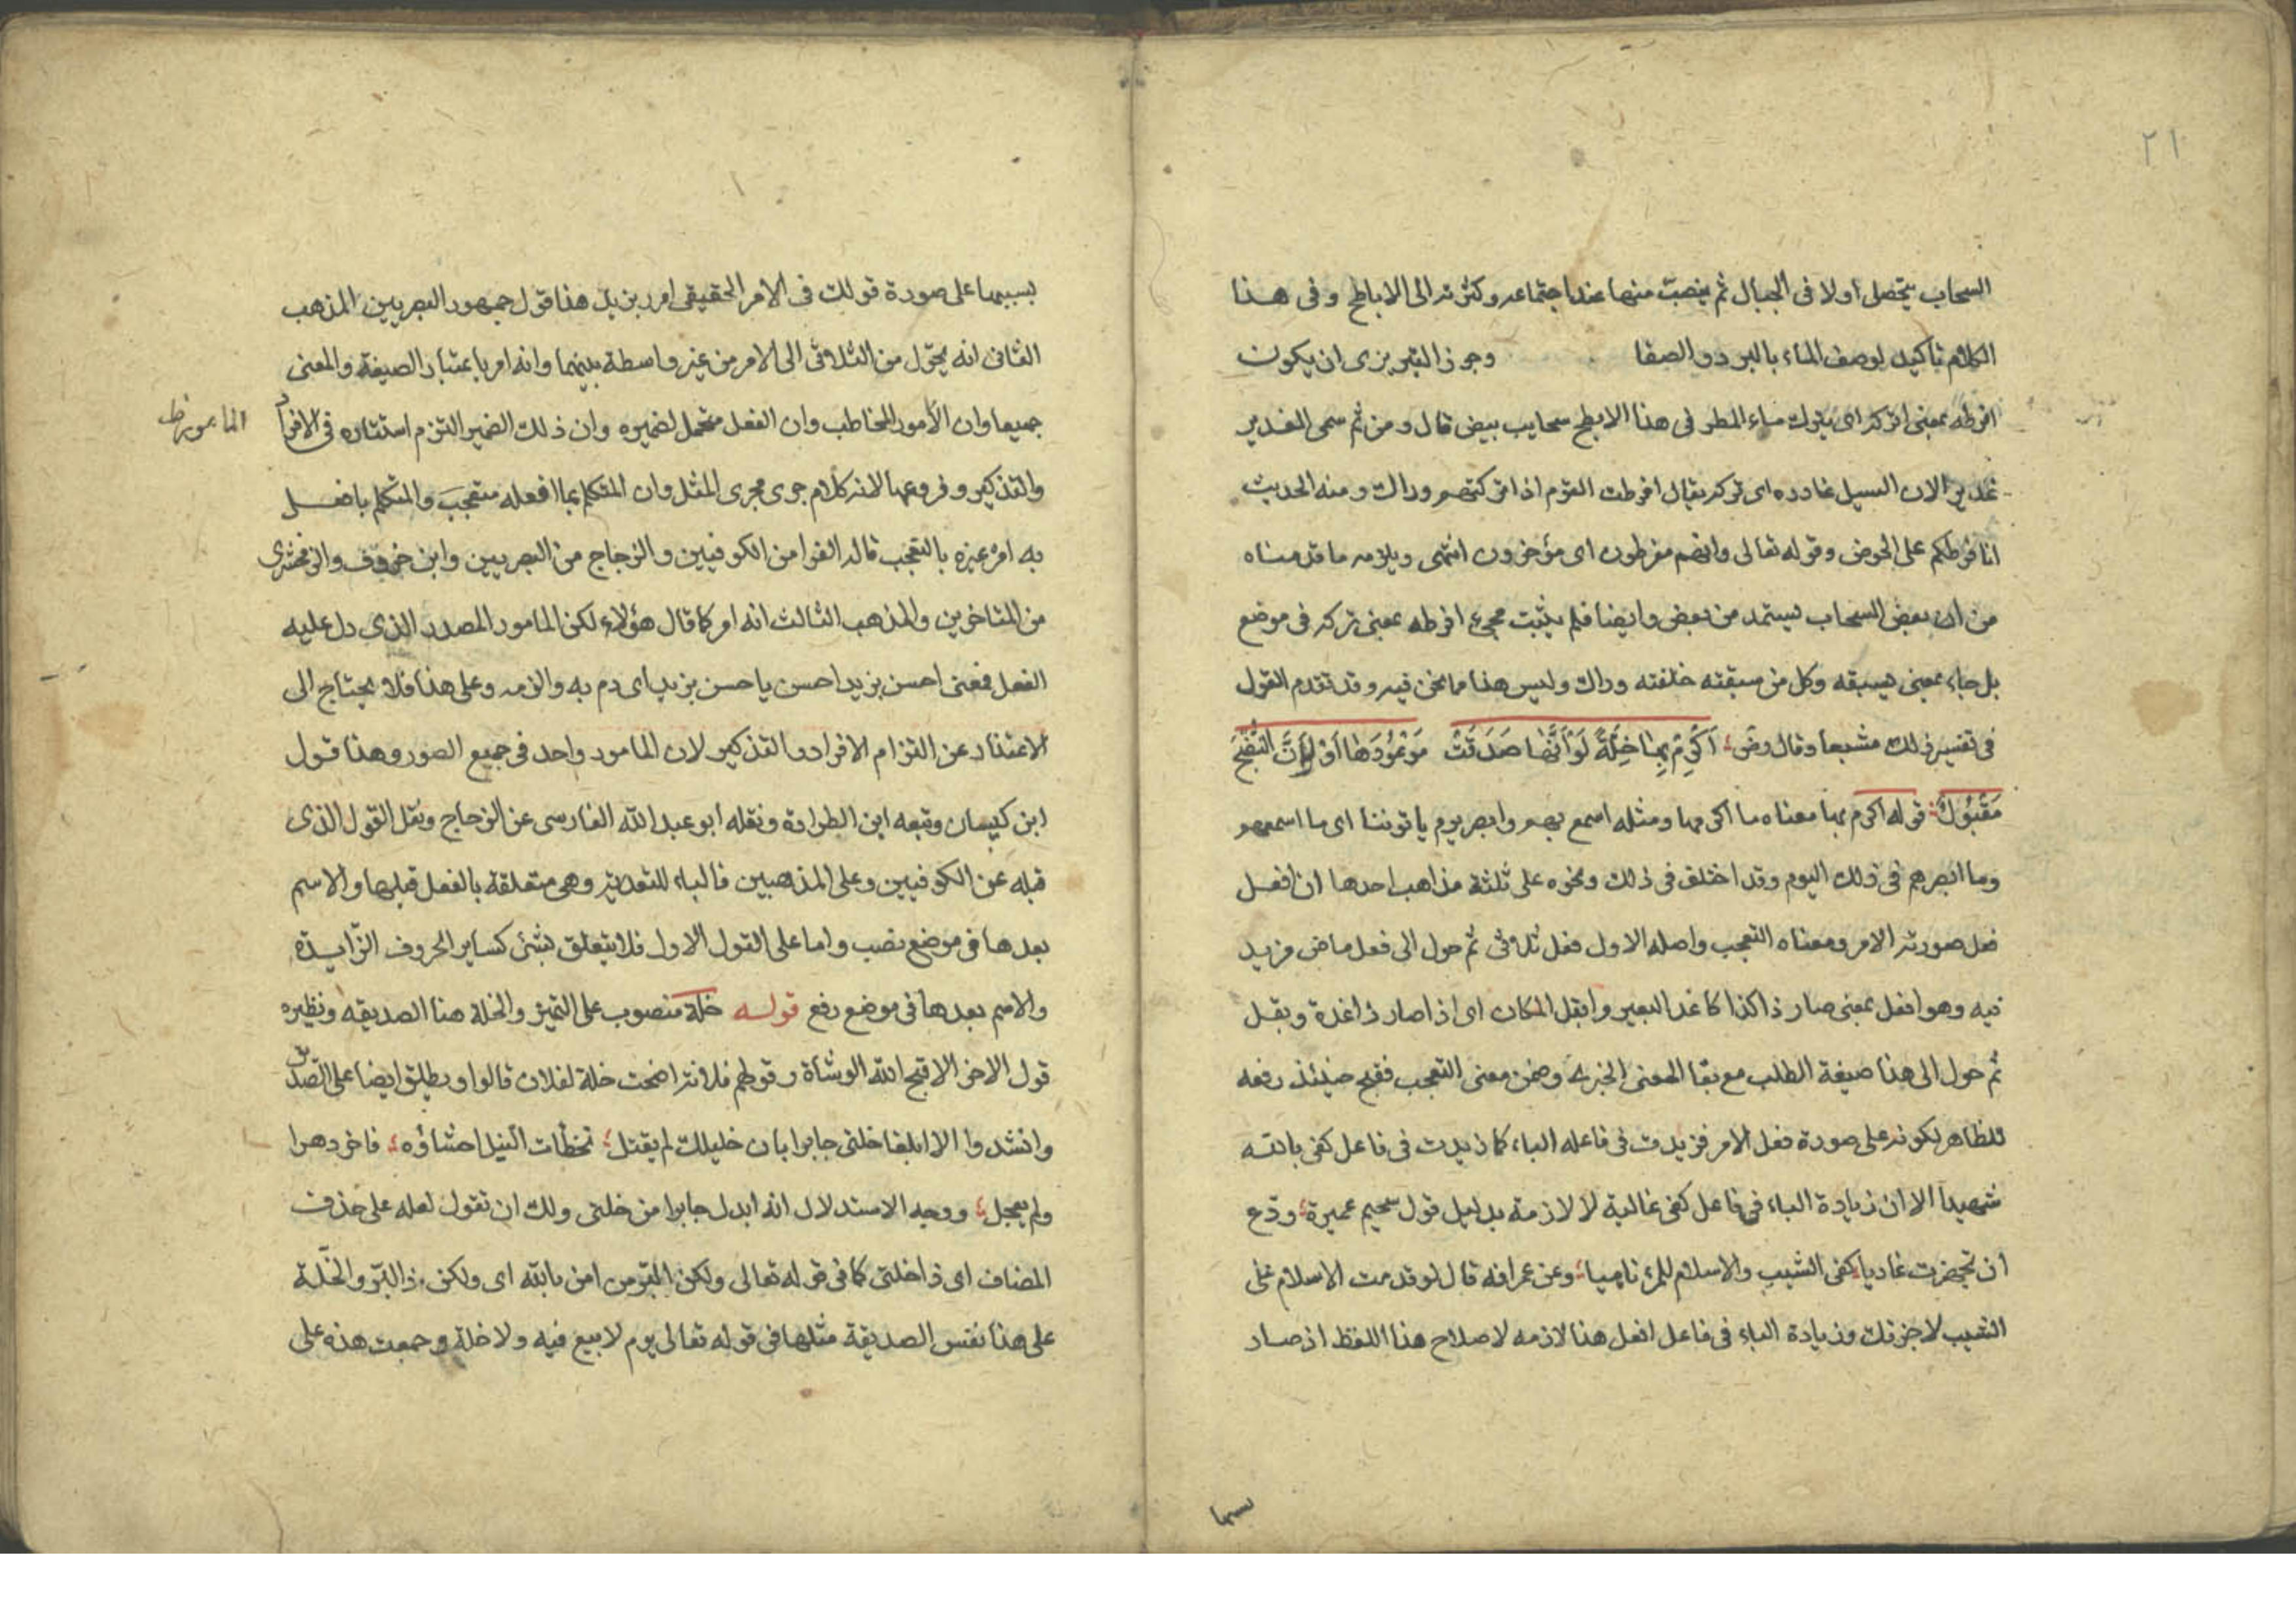 ٢١
السحاب يتحصل اولا فى الجبال ثم ينصب منها عند اجتماعه وكثرته الى الاباطح وفى هذا
الكلام تاكيد لوصف الماء بالبرد والصفا وجوز التبريزى ان يكون
افرطه بمعنى اتركه اى يترك ماء المطر فى هذا الابطح سحايب بيض قال ومن ثم سمى الغدير
غديرا لان السيل غادره اى تركه يقال افرطت القوم اذا تركتهم وراك ومنه الحديث
انا فرطكم على الحوض وقوله تعالى وانهم مفرطون اى مؤخرون انتهى ويلزمه ما قدمناه
من ان بعض السحاب يستمد من بعض وايضا فلم يثبت مجىء افرطه بمعنى تركه فى موضع
بل جاء بمعنى يسبقه وكل من سبقته خلفته وراك وليس هذا مما نحن فيه وقد تقدم القول
فى تفسير ذلك مشبعا وقال رض؛ اَكْرِمْ بِهَا خِلَّةً لَوْ اَنَّهَا صَدَقَتْ مَوْعُوْدَهَا اَوْ لَوْ اَنَّ النُّصْحَ
مَقْبُوْلٌ؛ قوله اكرم بها معناه ما اكرمها ومثله اسمع بهم وابصر يوم ياتوننا اى ما اسمعهم
وما ابصرهم فى ذلك اليوم وقد اختلف فى ذلك ونحوه على ثلثة مذاهب احدها ان افعل
فعل صورته الامر ومعناه التعجب واصله الاول فعل ثلاثى ثم حول الى فعل ماض مزيد
فيه وهو افعل بمعنى صار ذا كذا كاغد البعير وابقل المكان اى اذا صار ذا غدة وبقل
ثم حول الى هذا صيغة الطلب مع بقا المعنى الخبرى وضمن معنى التعجب فقبح حينئذ رفعه
للظاهر لكونه على صورة فعل الامر فزيدت فى فاعله الباء كما زيدت فى فاعل كفى بالله
شهيدا الا ان زيادة الباء فى فاعل كفى غالبة لا لازمة بدليل قول سحيم عميرة؛ ودّع
ان تجهزت غاديا؛ كفى الشيب والاسلام للمرء ناهيا؛ وعن عمر انه قال لو قدمت الاسلام على
الشيب لاجزتك وزيادة الباء فى فاعل افعل هنا لازمه لاصلاح هذا اللفظ اذ صار
بسببها على صورة قولك فى الامر الحقيقى امرر بزيد هذا قول جمهور البصريين المذهب
الثانى انه يحوّل من الثلاثى الى الامر من غير واسطة بينهما وانه امر باعتبار الصيغة والمعنى
جميعا وان الأمور المخاطب وان الفعل متحمل لضميره وان ذلك الضمير التزم استتاره فى الافراد
المامور ظ
والتذكير وفروعهما لانه كلام جرى مجرى المثل وان المتكلم بما افعله متعجبَ والمتكلم بافعل
به امر غيره بالتعجب قاله الفرا من الكوفيين والزجاج من البصريين وابن خروف والزمخشرى
من المتاخرين والمذهب الثالث انه امر كما قال هؤلاء لكن المامور المصدر الذى دل عليه
الفعل فمعنى احسن بزيد احسن يا حسن بزيد اى دم به والزمه وعلى هذا فلا يحتاج الى
الاعتذار عن التزام الافراد والتذكير لان المامور واحد فى جميع الصور وهذا قول
ابن كيسان وتبعه ابن الطراوة ونقله ابو عبد الله الفارسى عن الزجاج ونقل القول الذى
قبله عن الكوفيين وعلى المذهبين فالباء للتعدية وهى متعلقة بالفعل قبلها والاسم
بعدها فى موضع نصب واما على القول الاول فلا يتعلق بشئ كساير الحروف الزّايدة
والاسم بعدها فى موضع رفع قوله خلة منصوب على التميز والخلة هنا الصديقه ونظيره
قول الاخر الا قبح الله الوشاة وقولهم فلانة اضحت خلة لفلان قالوا ويطلق ايضا على الصّديق
وانشدوا الا ابلغا خلتى جابرا بان خليلك لم يقتل؛ تخطأت النبل احشاؤه؛ فاخر دهرا
ولم يعجل؛ ووجه الاستدلال انه ابدل جابرا من خلتى ولك ان تقول لعله على حذف
المضاف اى ذا خلتى كما فى قوله تعالى ولكن البّر من امن بالله اى ولكن ذا البّر والخلّة
على هذا نفس الصديقة مثلها فى قوله تعالى يوم لا بيع فيه ولا خلة وجمعت هذه على